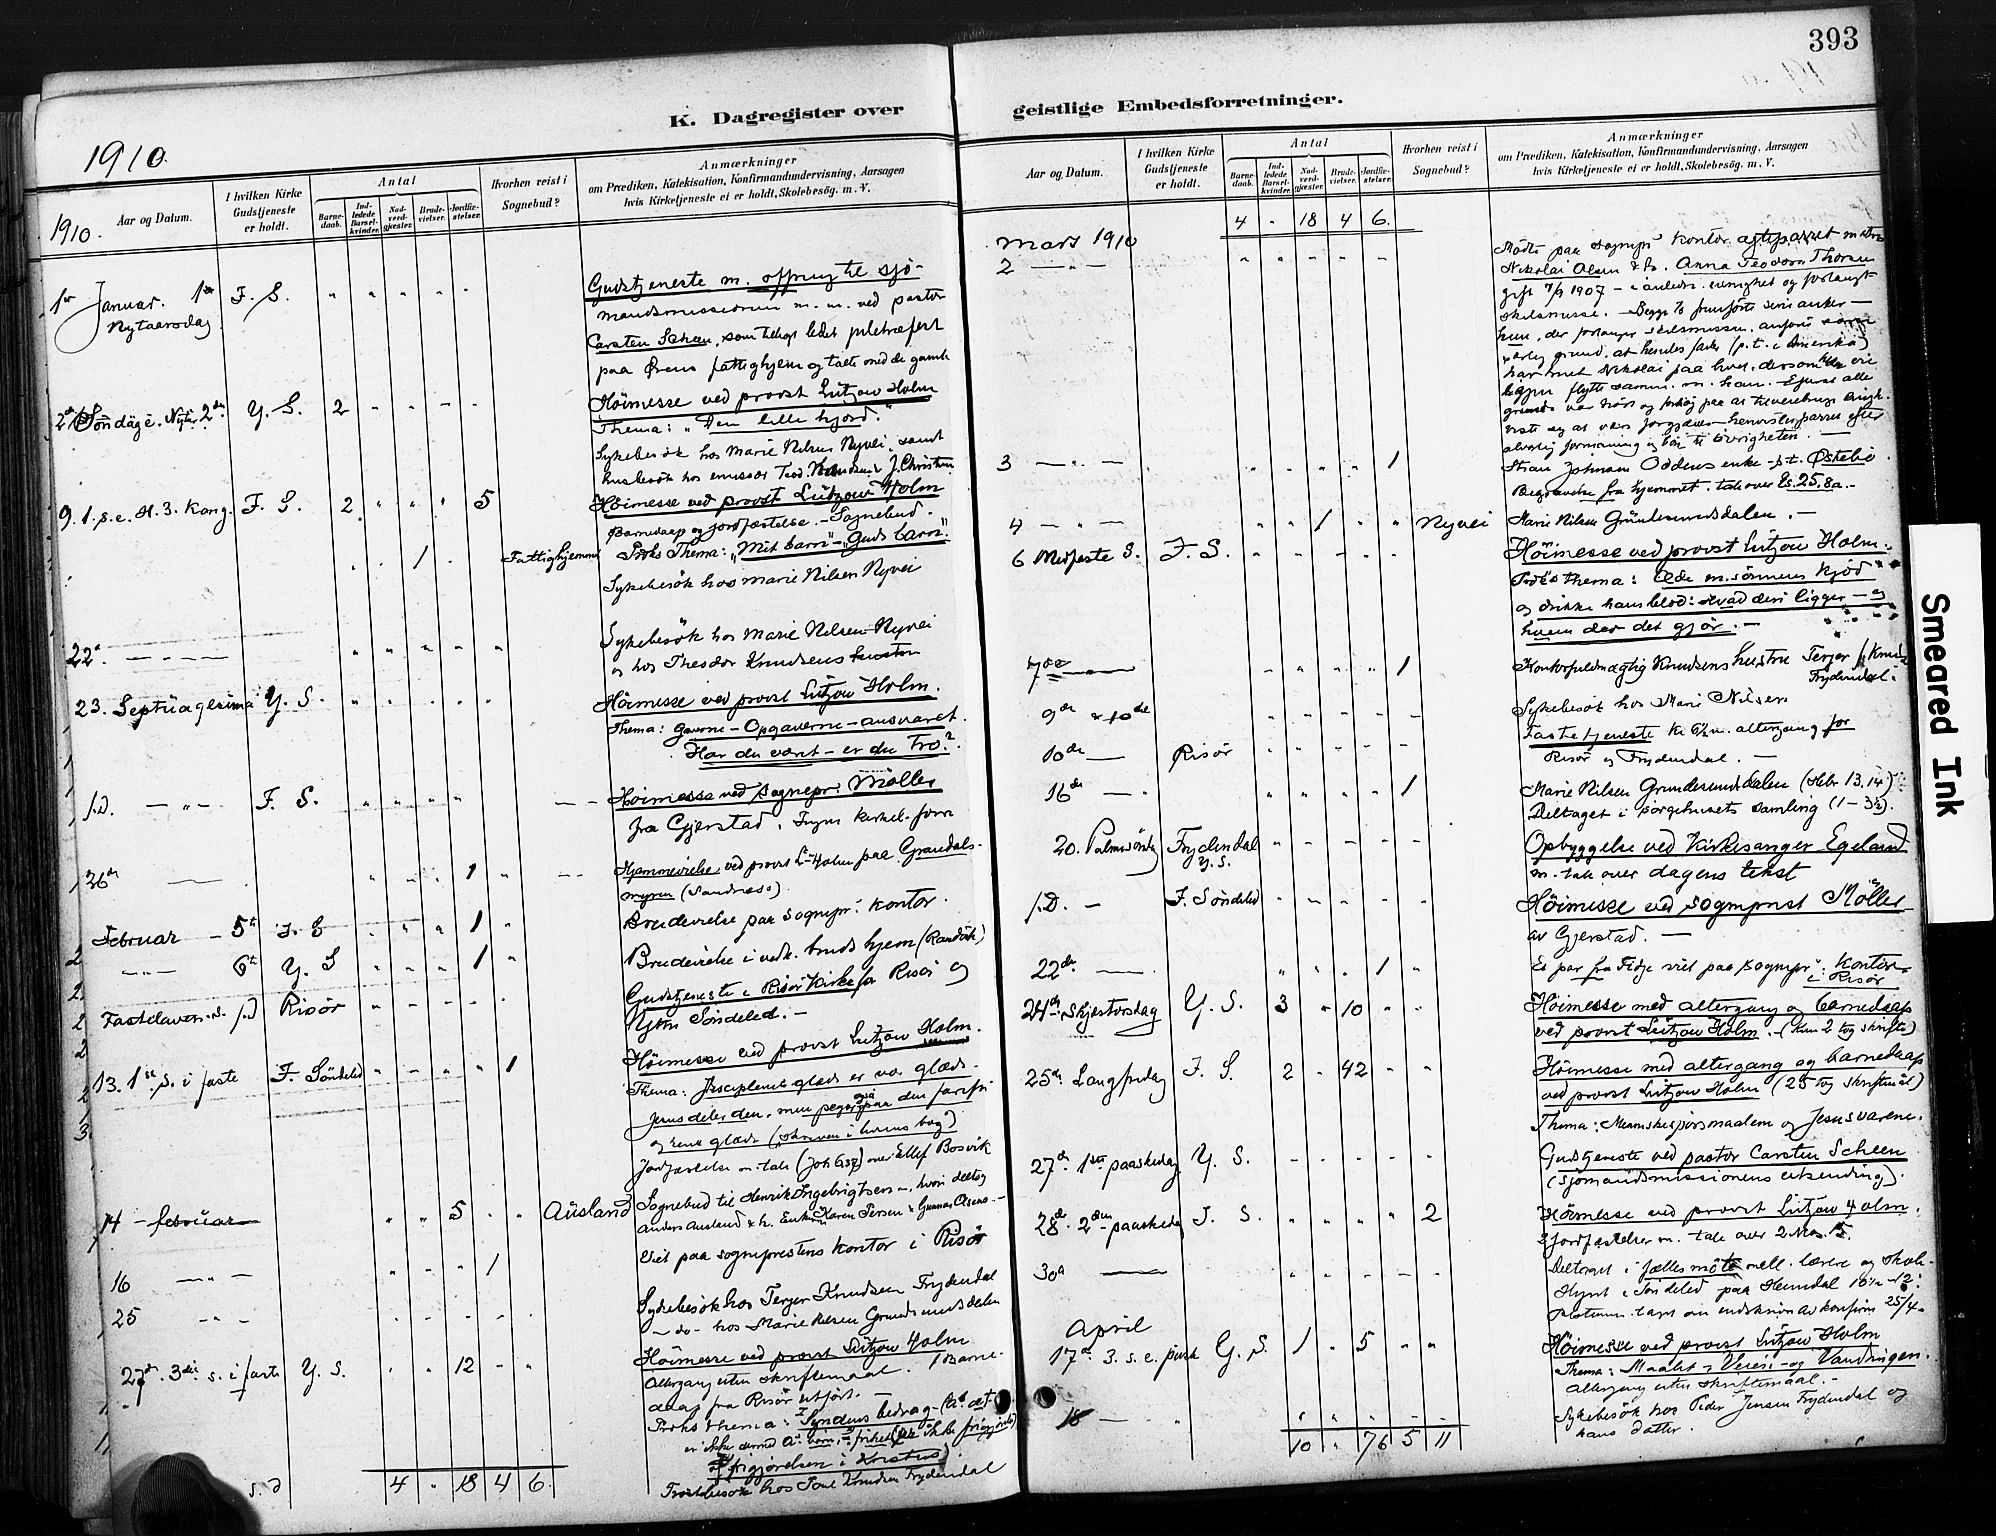 393
K. Dagregister over
geistlige Embedsforretninger.
1910.
Aar og Datum.
I hvilken Kirke Gudstjeneste er holdt.
Antal
Barnedaab.
Indledede Barselkvinder.
Nadverdgjæster.
Brudevielser.
Jordfæstelser.
Hvorhen reist i Sognebud?
Anmærkninger
om Prædiken, Katekisation, Konfirmandundervisning, Aarsagen
hvis Kirketjeneste ei er holdt, Skolebesøg. m. V.
1910.
Januar. 1ste F. S. Gudstjeneste m. offring til sjö-
Nytaarsdag mandsmissionen m. m. ved pastor
Carsten Scheen, som tillige ledet juletræfest
paa Ørens fattighjem og talte med de gamle
Söndag e. Nytaar 2den Y. S. 2 Höimesse ved provst Lützow Holm
Thema: "Den lille hjord."
Sykebesök hos Marie Nilsen Nyvei, samt
husbesök hos emissær Teod. Knudsen & J. Christen
9. 1. s. e. H. 3. Kong. F. S. 2 5 Höimesse ved provst Lützow Holm
Barnedaap og jordfæstelse. – Sognebud.
1 Fattighjemmet Prdks Thema: "Mit barn" – "Guds barn".
Sykebesök hos Marie Nilsen Nyvei
22 Sykebesök hos Marie Nilsen Nyvei
og hos Theodor Knudsens
23. Septuagesima Y. S. Höimesse ved provst Lützow Holm.
Thema: Gaverne – Opgaverne – ansvaret.
Har du været – er du tro?
s.D. F. S. Höimesse ved sognepr. Möller
fra Gjerstad.
26de 1 Hjemmevielse ved provst L. Holm paa Grandals-
myren (Sandnæs)
Februar 5te I. S 1 Brudevielse paa sognepr. kontor.
6te Y. S 1 Brudevielse i vedk. bruds hjem (Randvik)
Fastelavns s. s.D Risör Gudstjeneste i Risör Kirke for Risör og
Ytre Söndeled. –
13. 1ste s. i faste F. Söndeled 1 Höimesse ved provst Lützow Holm.
Thema: Disciplenes glæde er vor glæde.
Jesus deler den, men peger paa den farefri
og rene glæde (skreven i livens bog)
Jordfæstelse m. tale (Joh 6,37) over Ellef Bosvik
14 – februar 5 Ausland Sognebud til Henrik Ingebrigtsen –, hvori deltog
Anders Ausland & h. Enken Karen Tersen & Gunnar Olsens –
16 1 Viet paa sogneprestens kontor i Risör
25 Sykebesök hos Terjer Knudsen Frydendal
– do – hos Marie Nilsen Grundesundsdalen
27de. 3die s. i faste Y. S. 12 Höimesse ved provst Lützow Holm
Altergang uten skriftemaal. 1 Barne-
daap fra Risör utfört. –
Prdks thema: Syndens bedrag –
frigjörelsen i Kristus)
hos Tone Knudsen Frydendal
s. D 4 18 4 6.
Aar og Datum.
I hvilken Kirke Gudstjeneste er holdt.
Antal
Barnedaab.
Indledede Barselkvinder.
Nadverdgjæster.
Brudevielser.
Jordfæstelser.
Hvorhen reist i Sognebud?
Anmærkninger
om Prædiken, Katekisation, Konfirmandundervisning, Aarsagen
hvis Kirketjeneste ei er holdt, Skolebesög. m. V.
4 18 4 6.
Mars 1910
2 Mödte paa sognepr. kontor egteparret
Nikolai Olsen & h. Anna Teodora Thorsen
gift 1907 – i anledn. uenighet og forlangt
skilsmisse. – Begge to fremförte sine anker –
hun, der forlanger skilsmissen, anförer
grund, at hendes fader (p. t. i Amerika)
har Nikolai paa livet, dersom
flytte sammen m. ham.
alvorlig formaning og bön til övrigheten. –
3 1 Johnsen Oddens enke – p. t. Østebö
Begravelse fra hjemmet. tale over Es. 25,8a. –
4 1 Nyvei Marie Nilsen Grundesundsdalen. –
6 Midfaste S. F. S. Höimesse ved provst Lützow Holm.
thema: Æde m.sönnens kjöd
og drikke hans blod: Hvad deri ligger – og
hvem der det gjör. –
7de 1 Kontorfuldmægtig Knudsens hustru Terjer
Frydendal.
9de & 10de Sykebesök hos Marie Nilsen
10de Risör Fastetjeneste kl 6½ m. altergang for
Risör og Frydendal. –
16de 1 Marie Nilsen Grundesundsdalen (Hebr 13,14)
Deltaget i sörgehusets samling (1 – 3½).
20. Palmesöndag Frydendal Y. S. Opbyggelse ved Kirkesanger Egeland
m. tale over dagens tekst
s.D. – F. Söndeled Höimesse ved sogneprest Möller
av Gjerstad. –
22de 1 Et par fra Fidje viet paa sognepr. kontor
i Risör
24de. Skjærtorsdag Y. S. 3 10 Höimesse med altergang og barnedaap
ved provst Lützow Holm. (Kun 2 tog skrifte)
25de Langfredag F. S. 2 42 Höimesse med altergang og barnedaap
ved provst Lützow Holm (25 tog skriftmål)
Thema: Menneskespörsmaalene og Jesu svarene.
27de. 1ste paaskedag Y. S. Gudstjeneste ved pastor Carsten Scheen
(Sjömandsmissionens utsending).
28de. 2den paaskedag F. S. 2 Höimesse ved provst Lützow Holm.
2 jordfæstelser m. tale over 2 Mos. 15.
30te Deltaget i fælles möte mell. lærere og skole-
styret i Söndeled paa Heimdal 10½ – 12:
25/4.
April
17de 3. s. e. paask Y. S. 1 5 Höimesse ved provst Lützow Holm
Thema: Maalet – Veien – og Vandringen.
Altergang uten skriftemaal. –
18 Sykebesök hos Peder Jensen Frydendal og
hans datter.
10 76 5 11
Smeared Ink